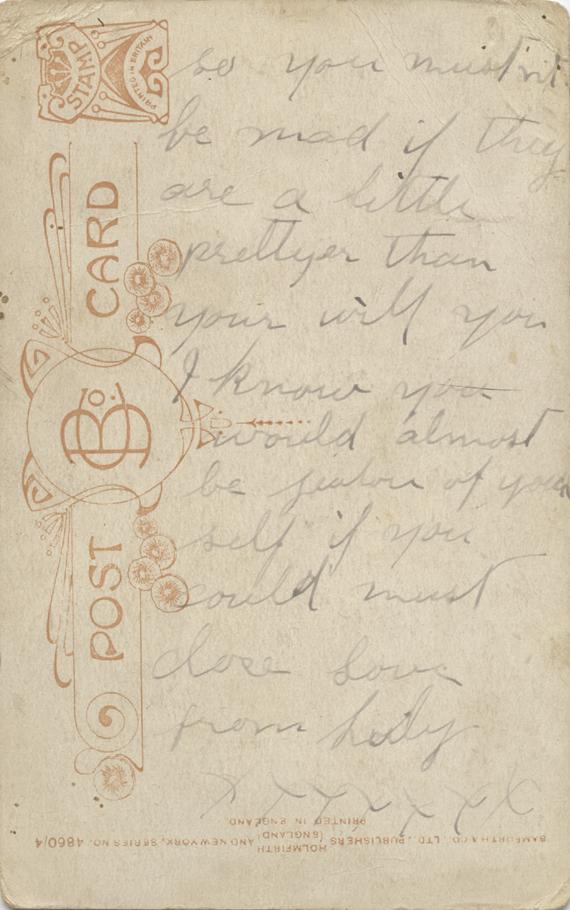 so you mustn't
be mad if they
are a little
prettyer than
your will you
I know you
would almost
be jealou of your
self if you
could must
close love
from
x x x x x x x
STAMP
PRINTED IN BRITAIN
POST CARD
B & Co.
BAMFORTH & CO., LTD., PUBLISHERS
HOLMFIRTH (ENGLAND) AND NEW YORK, SERIES NO. 4860/4
PRINTED IN ENGLAND.